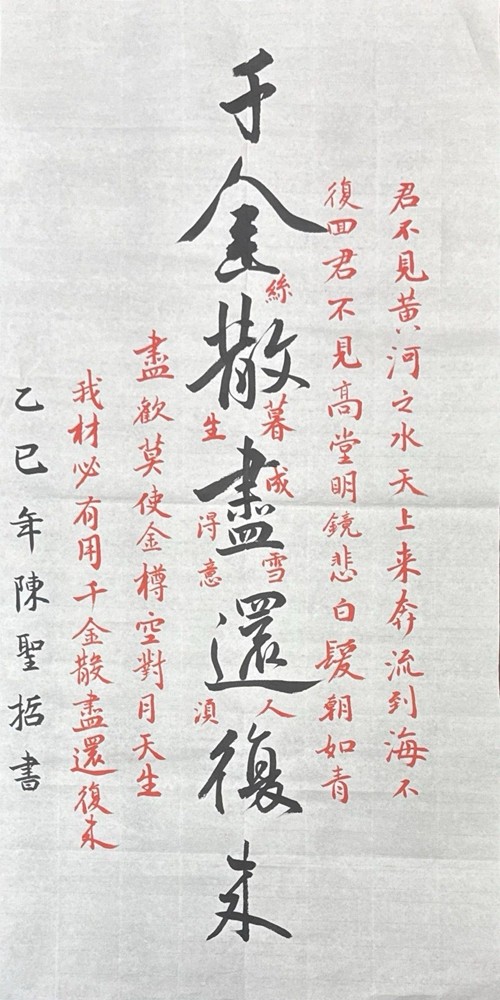 君不見黄河之水天上来奔流到海不
復回君不見高堂明鏡悲白髮朝如青
絲暮成雪人
千金散盡還復来
生得意須
盡歡莫使金樽空對月天生
我材必有用千金散盡還復来
乙巳年陳聖括書